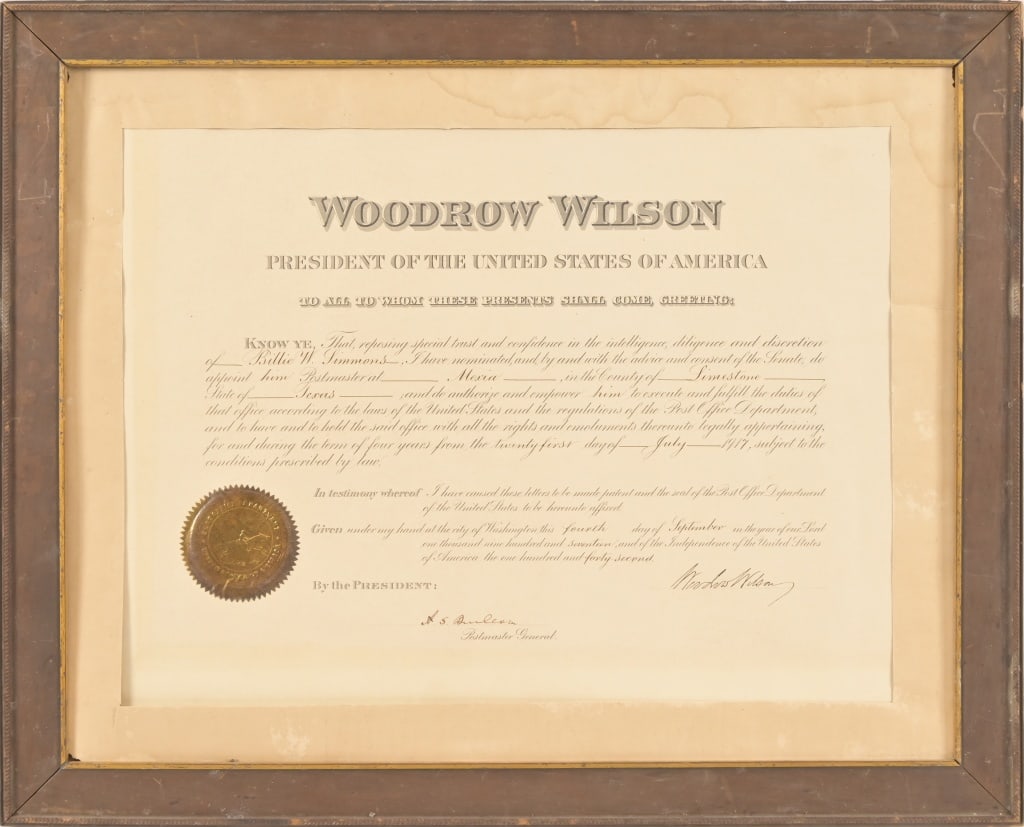 WOODROW WILSON
PRESIDENT OF THE UNITED STATES OF AMERICA
TO ALL TO WHOM THESE PRESENTS SHALL COME, GREETING:
KNOW YE, That, reposing special trust and confidence in the intelligence, diligence and discretion
of Billie W. Simmons, I have nominated, and, by and with the advice and consent of the Senate, do
appoint him Postmaster at Mexia, in the County of Limestone
State of Texas, and do authorize and empower him to execute and fulfill the duties of
that office according to the laws of the United States and the regulations of the Post Office Department,
and to have and to hold the said office with all the rights and emoluments thereunto legally appertaining,
for and during the term of four years from the twenty first day of July 1917, subject to the
conditions prescribed by law.
In testimony whereof I have caused these letters to be made patent and the seal of the Post Office Department
of the United States to be hereunto affixed.
Given under my hand at the city of Washington this fourth day of September in the year of our Lord
one thousand nine hundred and seventeen, and of the Independence of the United States
of America the one hundred and forty second.
By the PRESIDENT: Woodrow Wilson
A S Burleson
Postmaster General.